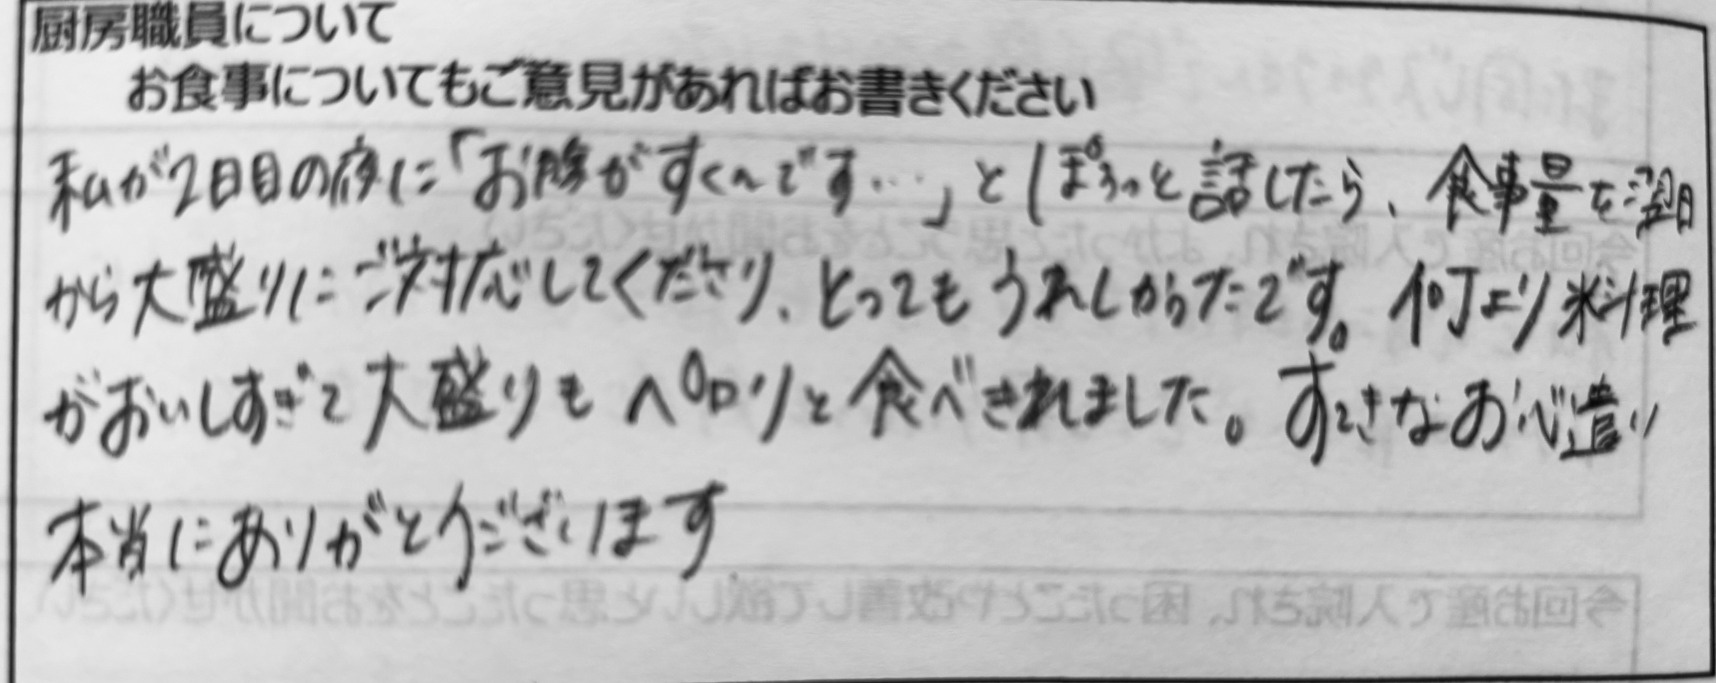 厨房職員について
お食事についてもご意見があればお書きください
私が2日目の夜に「お腹がすくんです…」とぽろっと話したら、食事量を翌日
から大盛りにご対応してくださり、とってもうれしかったです。何より料理
がおいしすぎて大盛りもペロリと食べきれました。すてきなお心遣い
本当にありがとうございます
今回お産で入院され、よかったと思うことをお聞かせください
今回お産で入院され、困ったことや改善して欲しいと思ったことをお聞かせください